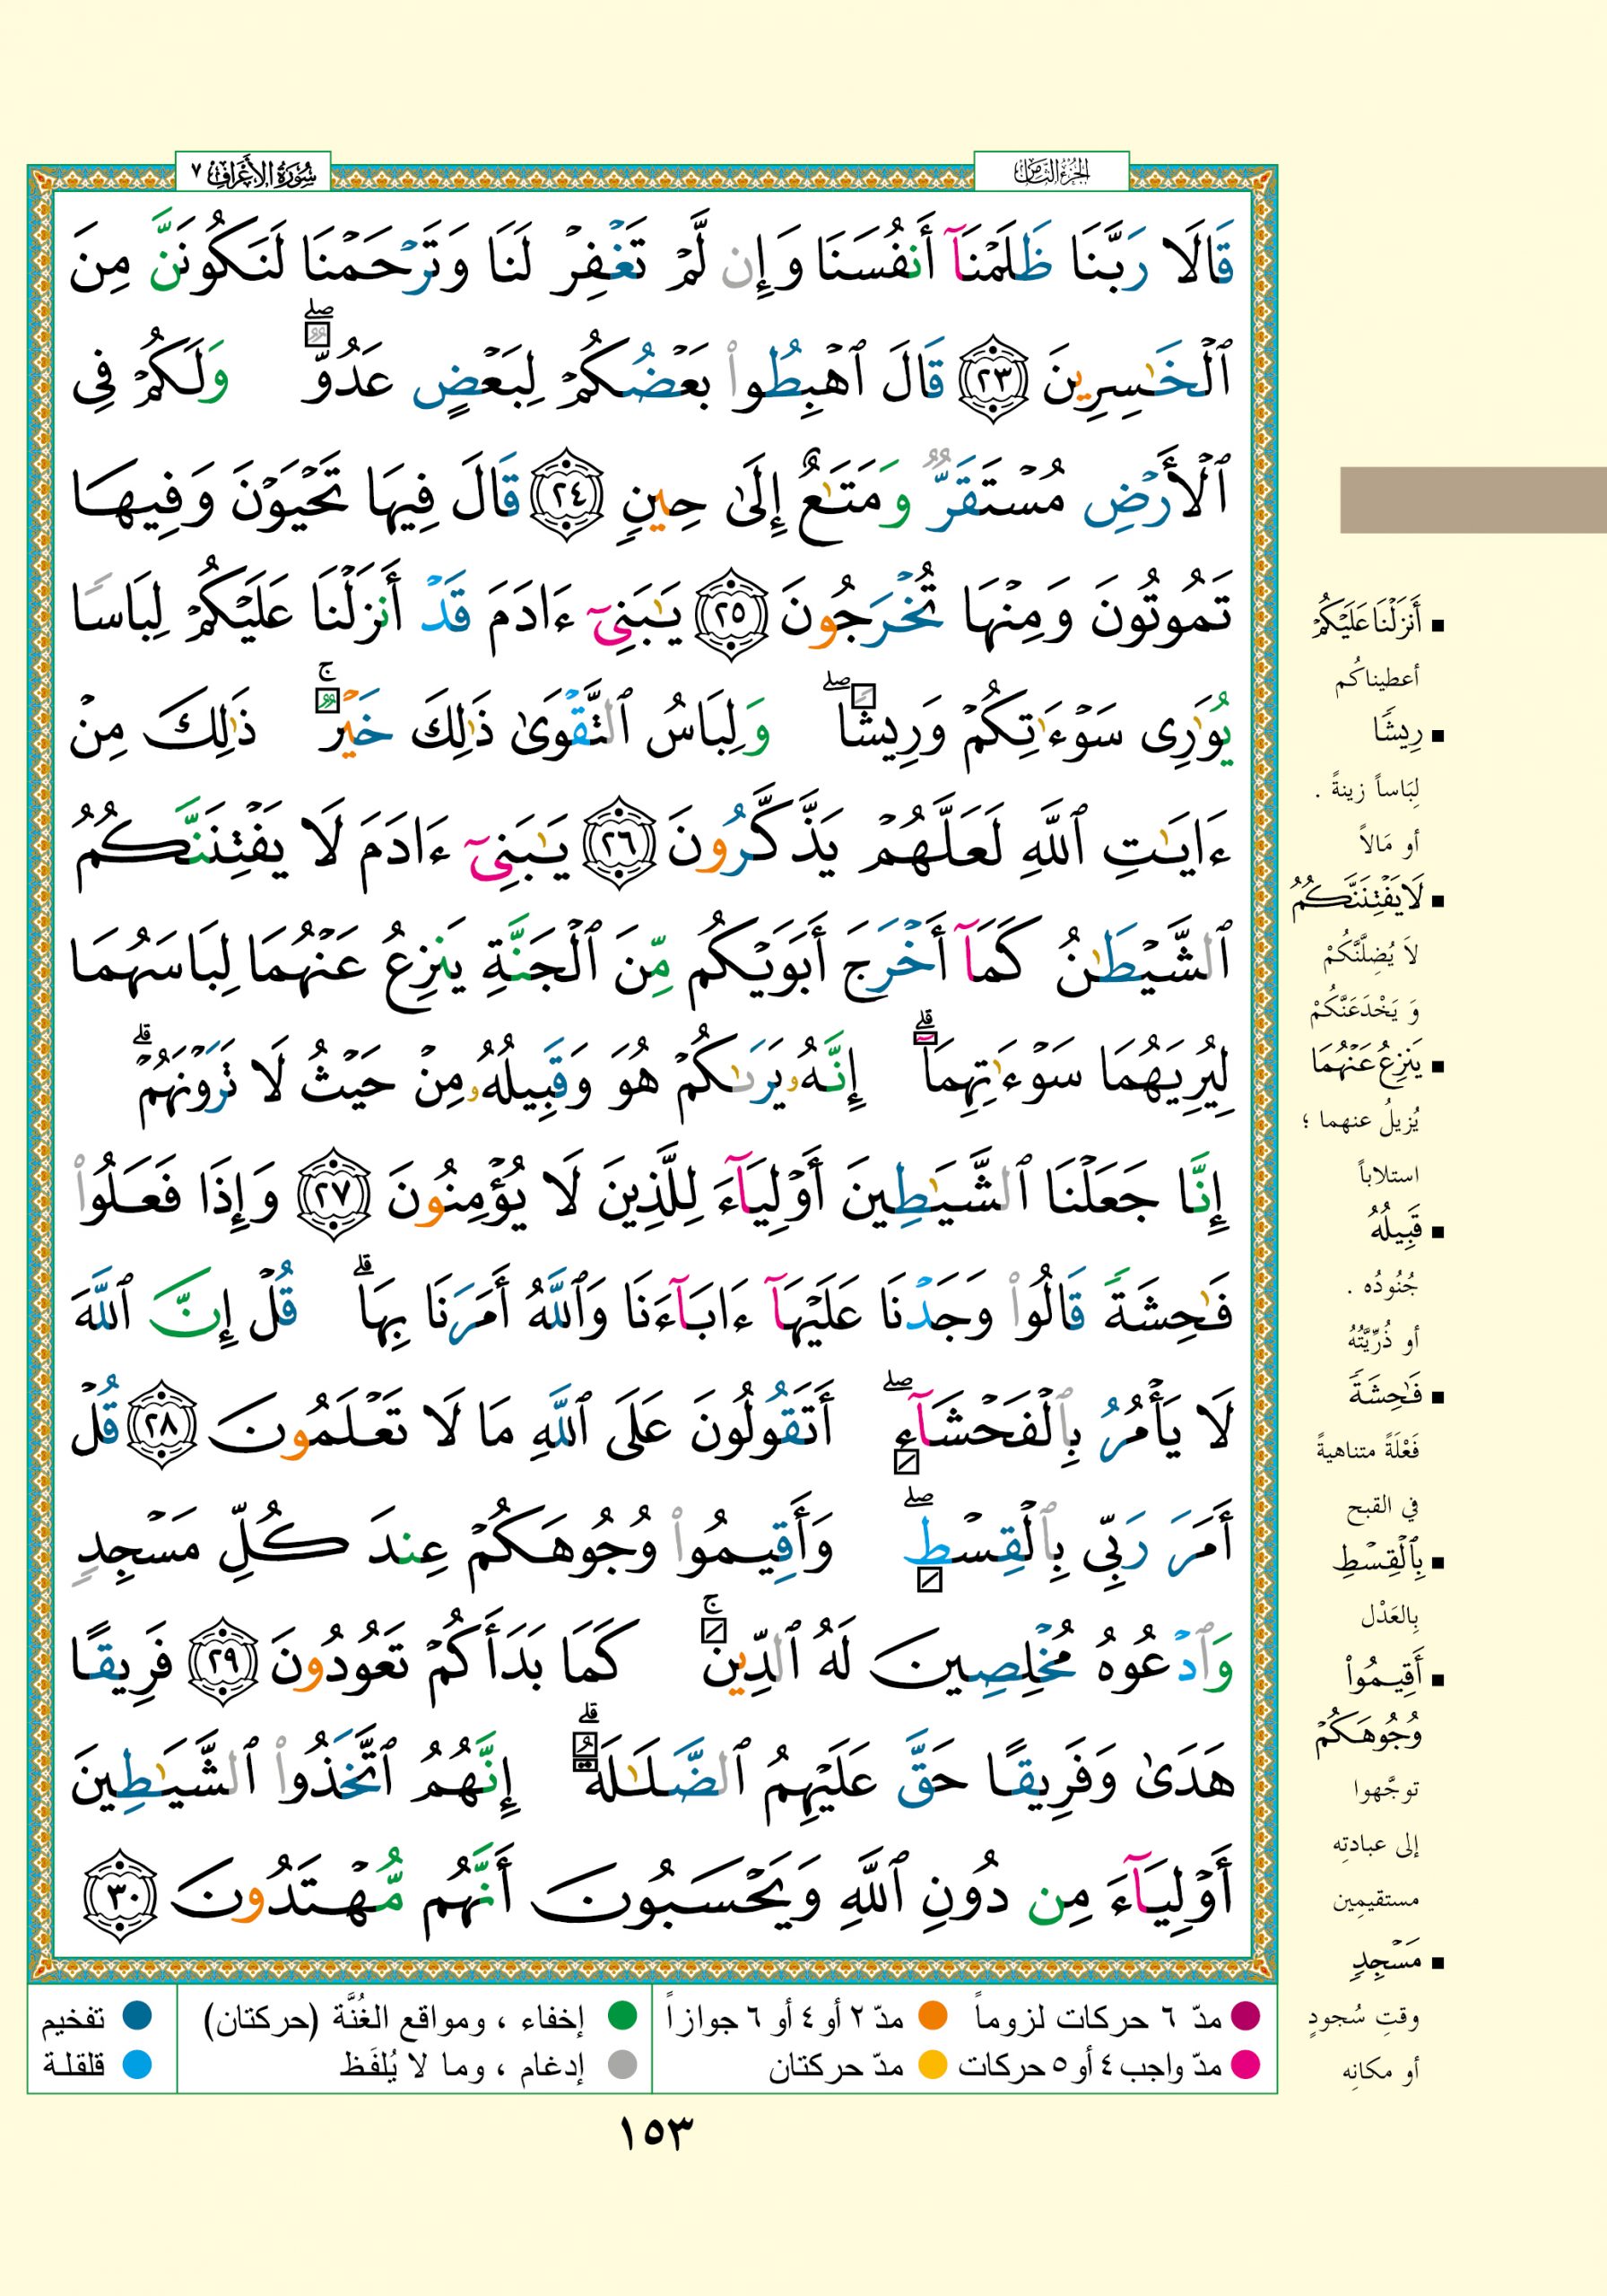 الجزء الثامن
سورة الأعراف ٧
قَالَا رَبَّنَا ظَلَمْنَآ أَنفُسَنَا وَإِن لَّمْ تَغْفِرْ لَنَا وَتَرْحَمْنَا لَنَكُونَنَّ مِنَ
ٱلْخَٰسِرِينَ ٢٣ قَالَ ٱهْبِطُوا۟ بَعْضُكُمْ لِبَعْضٍ عَدُوٌّ ۖ وَلَكُمْ فِى
ٱلْأَرْضِ مُسْتَقَرٌّ وَمَتَٰعٌ إِلَىٰ حِينٍ ٢٤ قَالَ فِيهَا تَحْيَوْنَ وَفِيهَا
تَمُوتُونَ وَمِنْهَا تُخْرَجُونَ ٢٥ يَٰبَنِىٓ ءَادَمَ قَدْ أَنزَلْنَا عَلَيْكُمْ لِبَاسًا
يُوَٰرِى سَوْءَٰتِكُمْ وَرِيشًا ۖ وَلِبَاسُ ٱلتَّقْوَىٰ ذَٰلِكَ خَيْرٌ ۚ ذَٰلِكَ مِنْ
ءَايَٰتِ ٱللَّهِ لَعَلَّهُمْ يَذَّكَّرُونَ ٢٦ يَٰبَنِىٓ ءَادَمَ لَا يَفْتِنَنَّكُمُ
ٱلشَّيْطَٰنُ كَمَآ أَخْرَجَ أَبَوَيْكُم مِّنَ ٱلْجَنَّةِ يَنزِعُ عَنْهُمَا لِبَاسَهُمَا
لِيُرِيَهُمَا سَوْءَٰتِهِمَآ ۗ إِنَّهُۥ يَرَىٰكُمْ هُوَ وَقَبِيلُهُۥ مِنْ حَيْثُ لَا تَرَوْنَهُمْ ۗ
إِنَّا جَعَلْنَا ٱلشَّيَٰطِينَ أَوْلِيَآءَ لِلَّذِينَ لَا يُؤْمِنُونَ ٢٧ وَإِذَا فَعَلُوا۟
فَٰحِشَةً قَالُوا۟ وَجَدْنَا عَلَيْهَآ ءَابَآءَنَا وَٱللَّهُ أَمَرَنَا بِهَا ۗ قُلْ إِنَّ ٱللَّهَ
لَا يَأْمُرُ بِٱلْفَحْشَآءِ ۖ أَتَقُولُونَ عَلَى ٱللَّهِ مَا لَا تَعْلَمُونَ ٢٨ قُلْ
أَمَرَ رَبِّى بِٱلْقِسْطِ ۖ وَأَقِيمُوا۟ وُجُوهَكُمْ عِندَ كُلِّ مَسْجِدٍ
وَٱدْعُوهُ مُخْلِصِينَ لَهُ ٱلدِّينَ ۚ كَمَا بَدَأَكُمْ تَعُودُونَ ٢٩ فَرِيقًا
هَدَىٰ وَفَرِيقًا حَقَّ عَلَيْهِمُ ٱلضَّلَٰلَةُ ۗ إِنَّهُمُ ٱتَّخَذُوا۟ ٱلشَّيَٰطِينَ
أَوْلِيَآءَ مِن دُونِ ٱللَّهِ وَيَحْسَبُونَ أَنَّهُم مُّهْتَدُونَ ٣٠
أَنزَلْنَا عَلَيْكُمْ
أعطيناكُم
رِيشًا
لِبَاساً زينةً .
أو مَالاً
لَا يَفْتِنَنَّكُمُ
لاَ يُضِلَّنَّكُمْ
وَ يَخْدَعَنَّكُمْ
يَنزِعُ عَنْهُمَا
يُزيلُ عنهما ؛
استلاباً
قَبِيلُهُ
جُنُودُه .
أو ذُرِّيَّتُهُ
فَٰحِشَةً
فَعْلَةً متناهيةً
في القبح
بِٱلْقِسْطِ
بِالعَدْل
أَقِيمُوا۟
وُجُوهَكُمْ
توجَّهوا
إلى عبادتِه
مستقيمِين
مَسْجِدٍ
وقتِ سُجودٍ
أو مكانِه
مدّ ٦ حركات لزوماً مدّ ٢ أو ٤ أو ٦ جوازاً إخفاء ، ومواقع الغُنَّة (حركتان) تفخيم
مدّ واجب ٤ أو ٥ حركات مدّ حركتان إدغام ، وما لا يُلفَظ قلقلة
١٥٣